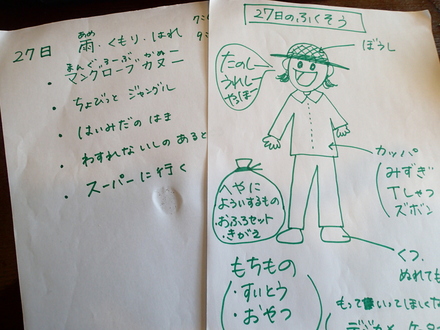 27日
あめ
雨・くもり・はれ
まんぐろーぶ かぬー
・マングローブカヌー
・ちょびっと ジャングル
・はいみだの はま
・わすれないしの あると
・スーパーに行く
27日のふくそう
ぼうし
たのしー
うれしー
やっほー
カッパ
みずぎ
Tしゃつ
ズボン
へやに
よういするもの
・おふろセット
・きがえ
くつ、
ぬれても
もちもの
・すいとう
・おやつ